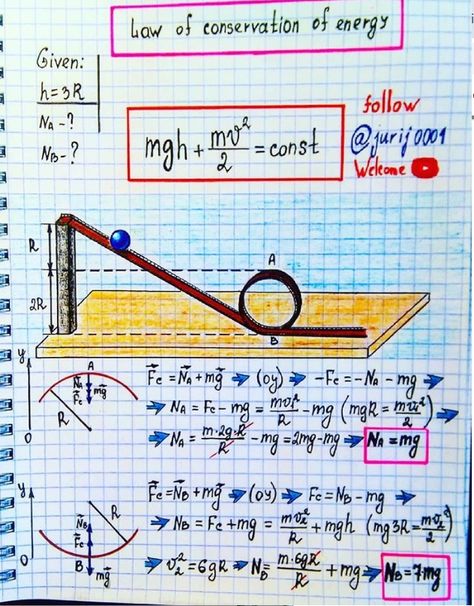 Law of conservation of energy
Given:
h=3R
N_A-?
N_B-?
mgh + mv²/2 = const
follow
@jurij0001
Welcome
R
2R
A
B
y
A
N⃗_A
mg⃗
F⃗c
R
0
F⃗c = N⃗_A + mg⃗ → (oy) → -Fc = -N_A - mg →
→ N_A = Fc - mg = mv₁²/R - mg (mgR = mv₁²/2) →
→ N_A = m·2g·R/R - mg = 2mg - mg → N_A = mg
y
N⃗_B
F⃗c
R
B
mg⃗
0
F⃗c = N⃗_B + mg⃗ → (oy) → Fc = N_B - mg →
→ N_B = Fc + mg = mv₂²/R + mgh (mg3R = mv₂²/2)
→ v₂² = 6gR → N_B = m·6gR/R + mg → N_B = 7mg